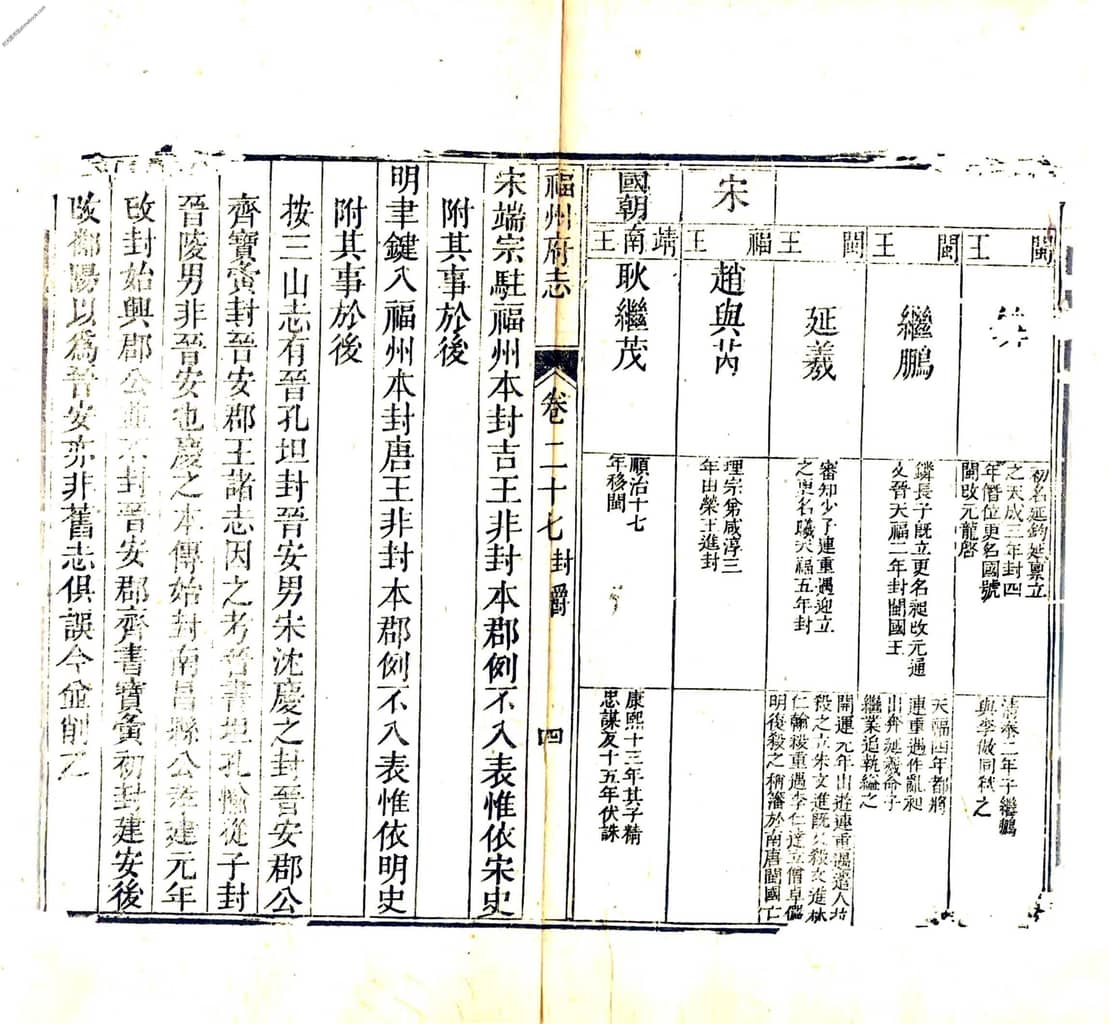 閩王
初名延鈞延稟立
之天成三年封四
年僭位更名國號
閩改元龍啓
清泰二年子繼鵬
與李倣同弒之
閩王
繼鵬
鏻長子既立更名昶改元通
文晉天福二年封閩國王
天福四年都將
連重遇作亂昶
出奔延羲命子
繼業追執縊之
閩王
延羲
審知少子連重遇迎立
之更名曦天福五年封
開運元年出遊連重遇遣人拉
殺之立朱文進既又殺文進林
仁翰殺重遇李仁達立僧卓儼
明後殺之稱籓於南唐閩國亡
宋
福王
趙與芮
理宗弟咸淳三
年由榮王進封
國朝
靖南王
耿繼茂
順治十七
年移閩
康熙十三年其子精
忠謀反十五年伏誅
福州府志 卷二十七 封爵 四
宋端宗駐福州本封吉王非封本郡例不入表惟依宋史
附其事於後
明聿鍵入福州本封唐王非封本郡例不入表惟依明史
附其事於後
按三山志有晉孔坦封晉安男宋沈慶之封晉安郡公
齊寶夤封晉安郡王諸志因之考晉書坦孔愉從子封
晉陵男非晉安也慶之本傳始封南昌縣公孝建元年
改封始興郡公並不封晉安郡齊書寶夤初封建安後
改鄱陽以為晉安亦非舊志俱誤今僉削之